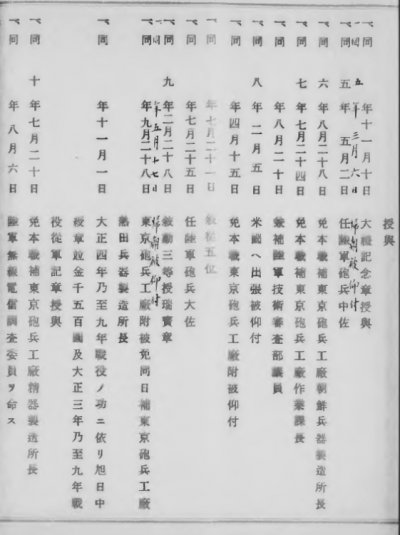 授與
一、同 年十一月十日 大禮記念章授與
一同 五年三月六日 歸朝被仰付
一、同 五年五月二日 任陸軍砲兵中佐
一、同 六年八月二十八日 免本職補東京砲兵工廠朝鮮兵器製造所長
一、同 七年七月二十四日 免本職補東京砲兵工廠作業課長
一、同 年八月二十日 兼補陸軍技術審査部議員
一、同 八年二月五日 米國へ出張被仰付
一、同 年四月十五日 免本職東京砲兵工廠附被仰付
一、同 年七月二十一日 敍從五位
一、同 年七月二十五日 任陸軍砲兵大佐
一、同 九年二月二十八日 敍勳三等授瑞寶章
一同 年五月十七日 歸朝被仰付
一、同 年九月二十八日 東京砲兵工廠附被免同日補東京砲兵工廠
熱田兵器製造所長
一、同 年十一月一日 大正四年乃至九年戰役ノ功ニ依リ旭日中
綬章竝金千五百圓及大正三年乃至九年戰
役從軍記章授與
一、同 十年七月二十日 免本職補東京砲兵工廠精器製造所長
一、同 年八月六日 陸軍無線電信調査委員ヲ命ス